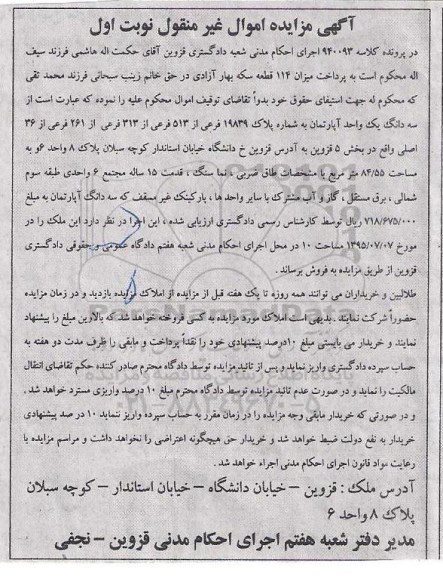 آگهی مزایده اموال غیر منقول نوبت اول
در پرونده کلاسه ۹۴۰۰۹۳ اجرای احکام مدنی شعبه دادگستری قزوین آقای حکمت اله هاشمی فرزند سیف
اله محکوم است به پرداخت میزان ۱۱۴ قطعه سکه بهار آزادی در حق خانم زینب سبحانی فرزند محمد تقی
که محکوم له جهت استیفای حقوق خود بدواً تقاضای توقیف اموال محکوم علیه را نموده که عبارت است از
سه دانگ یک واحد آپارتمان به شماره پلاک ۱۹۸۳۹ فرعی از ۵۱۳ فرعی از ۳۱۳ فرعی از ۲۶۱ فرعی از ۳۶
اصلی واقع در بخش ۵ قزوین به آدرس قزوین خ دانشگاه خیابان استاندار کوچه سبلان پلاک ۸ واحد ۶و به
مساحت ۸۴/۵۵ متر مربع با مشخصات طاق ضربی ، نما سنگ ، قدمت ۱۵ ساله مجتمع ۶ واحدی طبقه سوم
شمالی ، برق مستقل ، گاز و آب مشترک با سایر واحد ها ، پارکینگ غیر مسقف که سه دانگ آپارتمان به مبلغ
۷۱۸/۶۷۵/۰۰۰ ریال توسط کارشناس رسمی دادگستری ارزیابی شده ، این اجرا در نظر دارد این ملک را در
مورخ ۱۳۹۵/۰۷/۰۷ مساحت ۱۰ در محل اجرای احکام مدنی شعبه هفتم دادگاه عمومی و حقوقی دادگستری
قزوین از طریق مزایده به فروش برساند .
طالبین و خریداران می توانند همه روزه تا یک هفته قبل از مزایده از املاک مزایده بازدید و در زمان مزایده
حضوراً شرکت نمایند . بدیهی است املاک مورد مزایده به کسی فروخته خواهد شد که بالاترین مبلغ را پیشنهاد
نمایند و خریدار می بایستی مبلغ ۱۰درصد پیشنهادی خود را نقداً پرداخت و مابقی را ظرف مدت دو هفته به
حساب سپرده دادگستری واریز نماید و پس از تائید مزایده توسط دادگاه محترم صادر کننده حکم تقاضای انتقال
مالکیت را نماید و در صورت عدم تائید مزایده توسط دادگاه محترم مبلغ ۱۰ درصد واریزی مسترد خواهد شد .
و در صورتی که خریدار مابقی وجه مزایده را در زمان مقرر به حساب سپرده واریز ننماید ۱۰ در صد پیشنهادی
خریدار به نفع دولت ضبط خواهد شد و خریدار حق هیچگونه اعتراضی را نخواهد داشت و مراسم مزایده با
رعایت مواد قانون اجرای احکام مدنی اجراء خواهد شد .
آدرس ملک : قزوین – خیابان دانشگاه – خیابان استاندار – کوچه سبلان
پلاک ۸ واحد ۶
مدیر دفتر شعبه هفتم اجرای احکام مدنی قزوین – نجفی